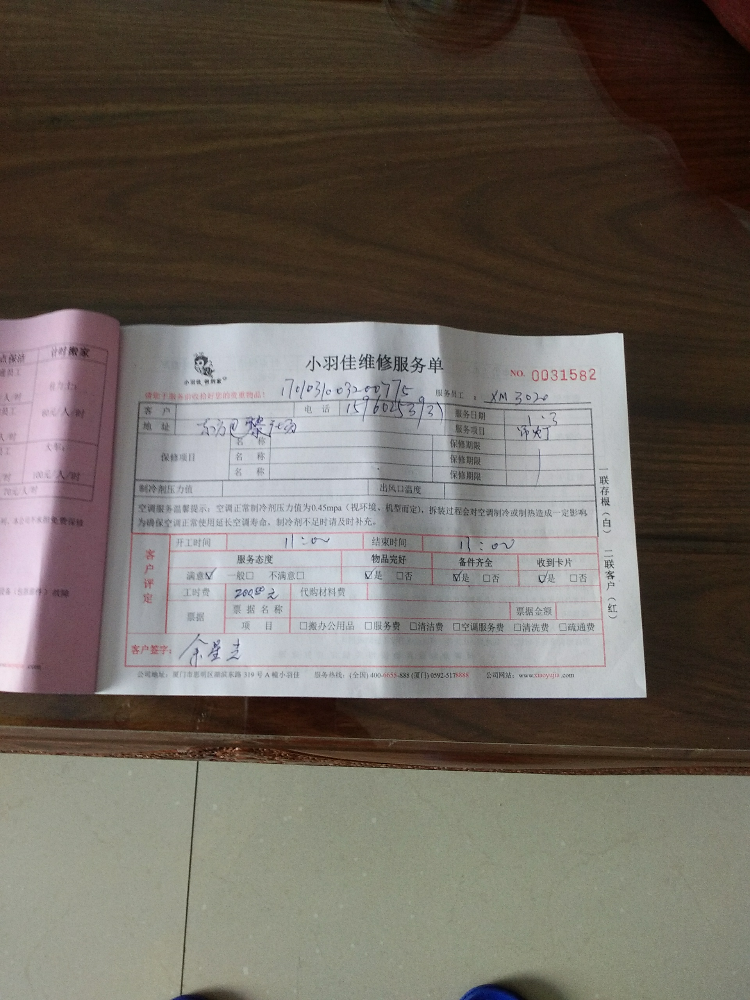 点保洁 计时搬家
小羽佳维修服务单
小羽佳 帮到家
NO. 0031582
服务员工：XM 3020
客户
电话
服务日期 1.3
地址
服务项目 吊灯
保修项目
名 称
名 称
名 称
保修期限
保修期限
保修期限
制冷剂压力值 出风口温度
空调服务温馨提示：空调正常制冷剂压力值为0.45mpa（视环境、机型而定），拆装过程会对空调制冷或制热造成一定影响，
为确保空调正常使用延长空调寿命，制冷剂不足时请及时补充。
客户评定
开工时间 11:00 结束时间 13:00
服务态度 物品完好 备件齐全 收到卡片
满意☑ 一般□ 不满意□ ☑是 □否 ☑是 □否 ☑是 □否
工时费 元 代购材料费
票据
票据名称 票据金额
项 目 □搬办公用品 □服务费 □清洁费 □空调服务费 □清洗费 □疏通费
客户签字：
公司地址：厦门市思明区湖滨东路 319 号 A 幢小羽佳 服务热线：(全国) 400-6655-888 (厦门) 0592-5178888 公司网站：www.xiaoyujia.com
一联存根（白） 二联客户（红）